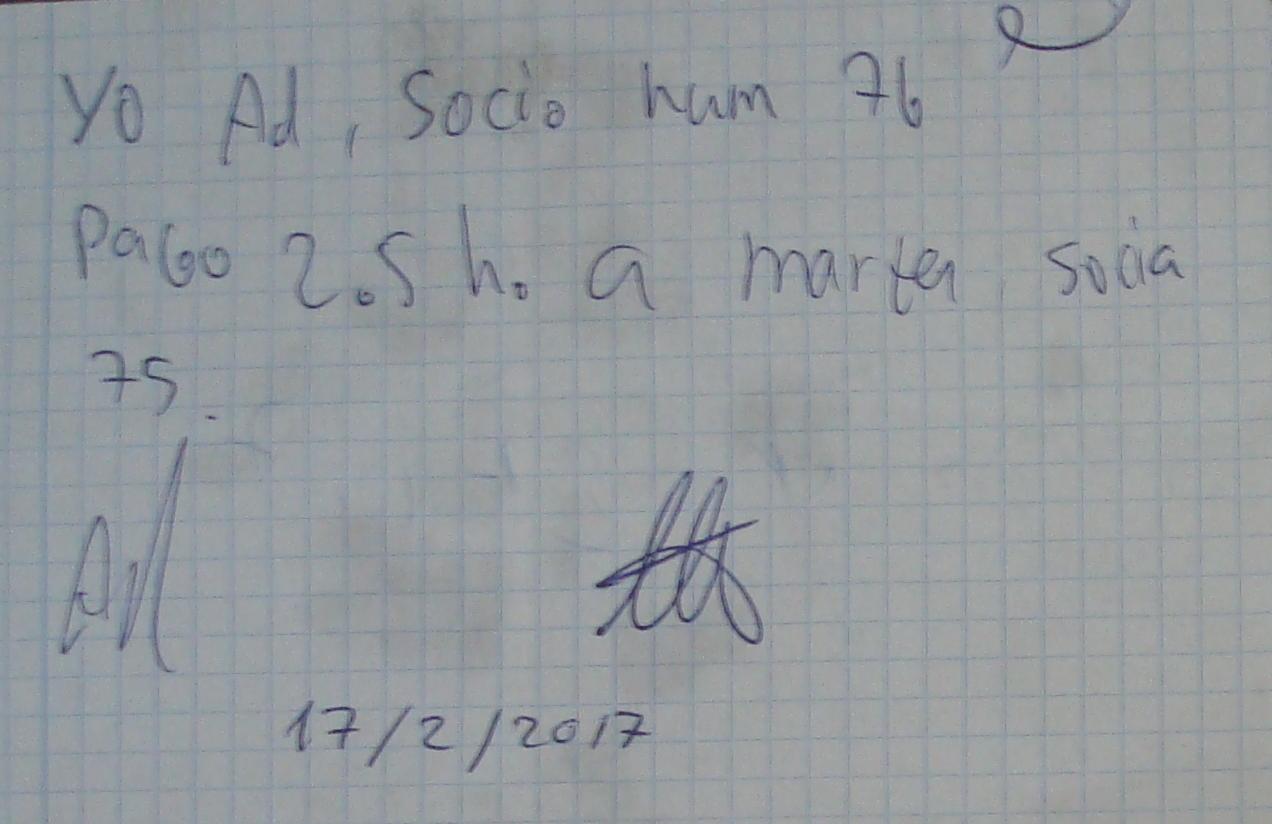 Yo Ad, Socio num 76
Pago 2.5 h. a marta socia
75.
Ad
17/2/2017